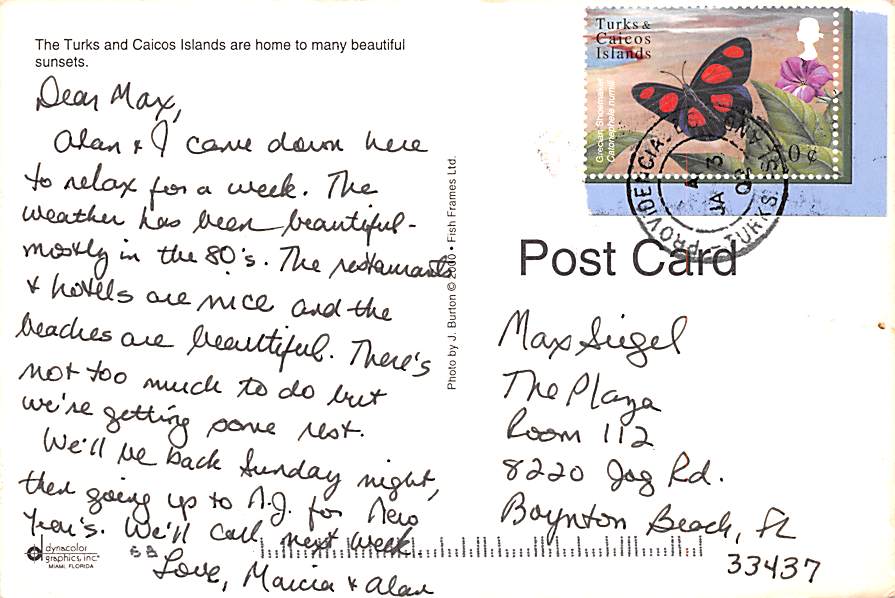 The Turks and Caicos Islands are home to many beautiful
sunsets.
Dear Max,
Alan & I came down here
to relax for a week. The
weather has been beautiful -
mostly in the 80's. The restaurants
& hotels are nice and the
beaches are beautiful. There's
not too much to do but
we're getting some rest.
We'll be back Sunday night,
then going up to N.J. for New
Year's. We'll call next week.
Love, Marcia & Alan
dynacolor
graphics, inc.
MIAMI, FLORIDA
Photo by J. Burton © 2000 • Fish Frames Ltd.
Turks &
Caicos
Islands
Grecian Shoemaker
Catonephele numili
0¢
PROVIDENCIALES
TURKS
JA 3
02
Post Card
Max Siegel
The Plaza
Room 112
8220 Jog Rd.
Boynton Beach, FL
33437